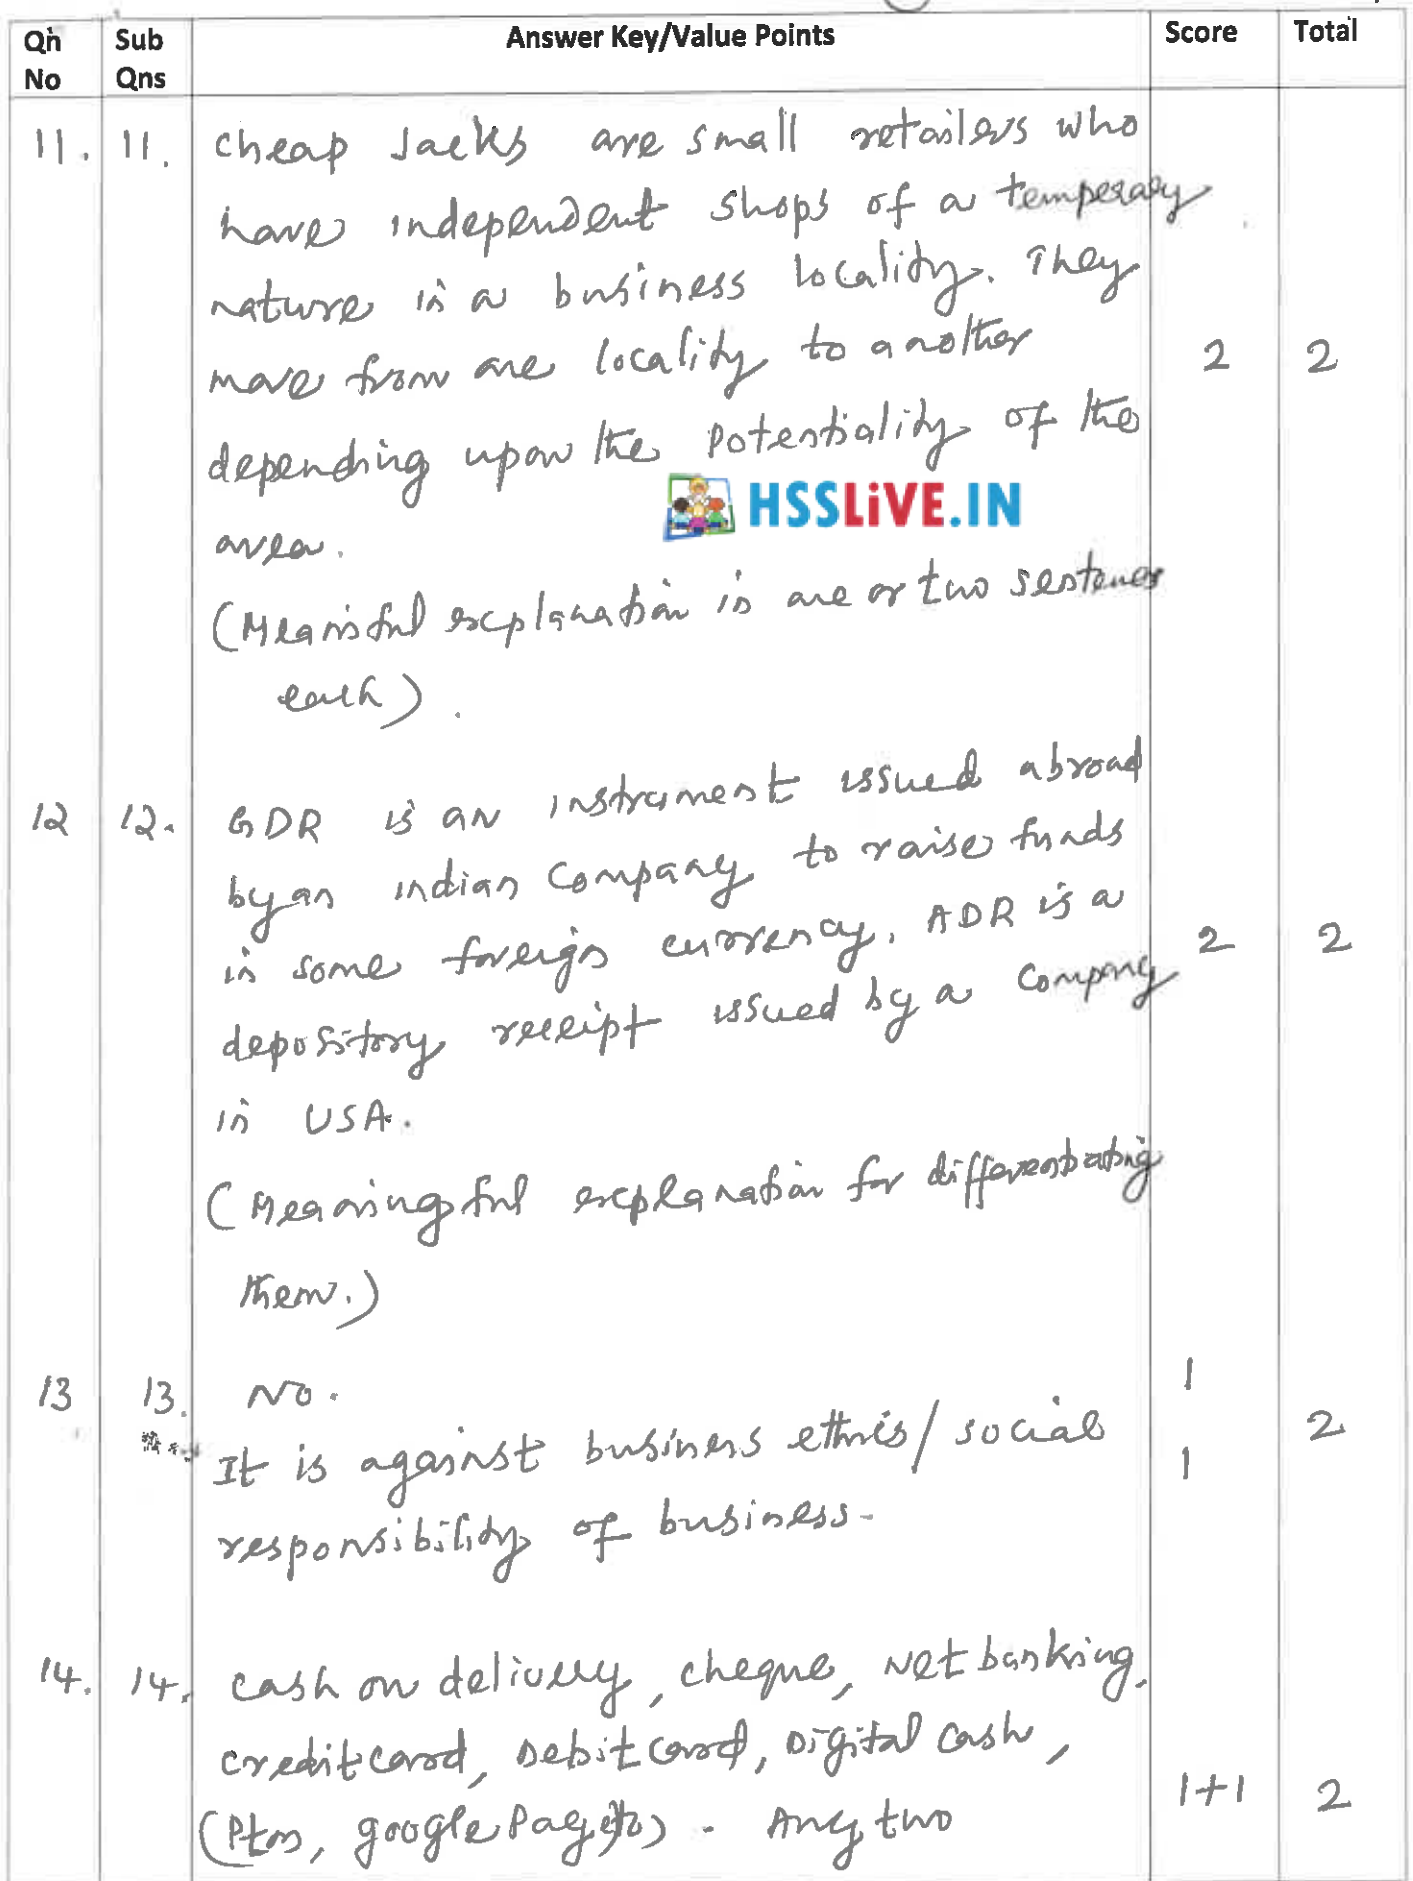 Qn No Sub Qns Answer Key/Value Points Score Total
11. 11. Cheap Jacks are small retailers who
have independent shops of a temperary
nature in a business locality. They
move from one locality to another 2 2
depending upon the potentiality of the
HSSLiVE.IN
area.
(Meanisful explanation in one or two sentences
each).
12 12. GDR is an instrument issued abroad
by an indian Company to raise funds
in some foreign currency. ADR is a 2 2
depository receipt issued by a Company
in USA.
(Meaningful explanation for differentiating
them.)
13 13. NO. 1
It is against business ethics/social 1 2
responsibility of business.
14. 14. Cash on delivery, cheque, Net banking,
credit card, Debit card, Digital cash,
google Pay etc) - Any two 1+1 2